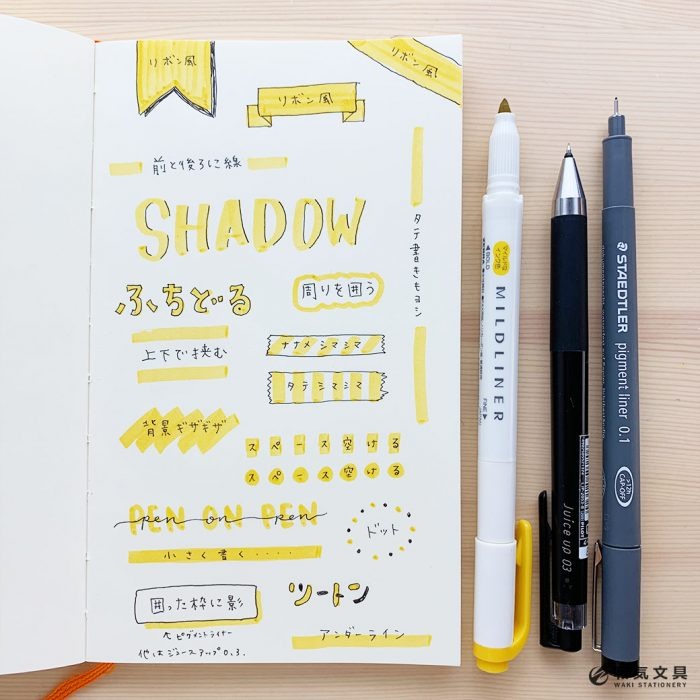 リボン風
リボン風
リボン風
前と後ろに線
SHADOW
タテ書きもヨシ
ふちどる
周りを囲う
上下で挟む
ナナメ シマシマ
タテ シマシマ
背景ギザギザ
スペース空ける
スペース空ける
PEN ON PEN
pen on pen
ドット
小さく書く....
囲った枠に影
ツートン
↖ピグメントライナー
他はジュースアップ0.3.
アンダーライン
マイルド
BOLD
MILDLINER
FINE
Juice up 03
STAEDTLER
pigment liner 0.1
CAP-OFF
和気文具
WAKI STATIONERY